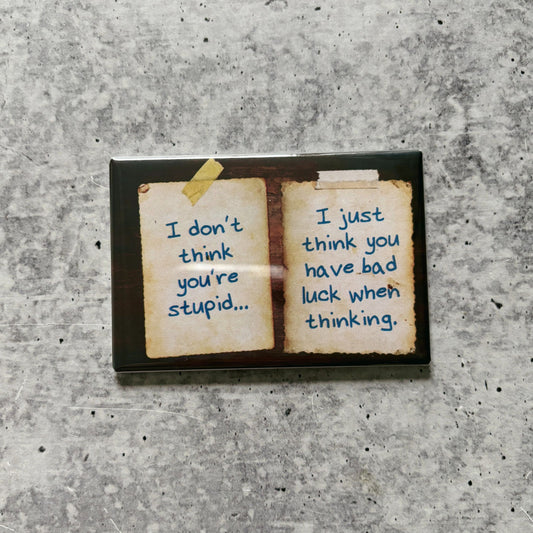 I don't
think
you're
stupid...
I just
think you
have bad
luck when
thinking.